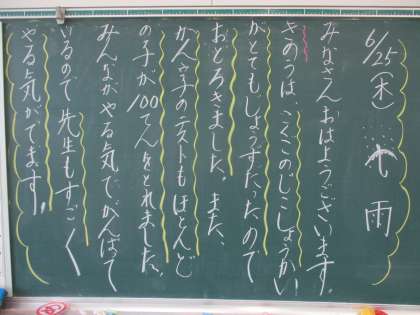 6/25(木) 雨
みなさんおはようございます。
きのうは、こくごのじこしょうかい
がとてもじょうずだったので
おどろきました。また、
かん字のテストもほとんど
の子が100てんをとれました。
みんながやる気でがんばって
いるので先生もすごく
やる気がでます。